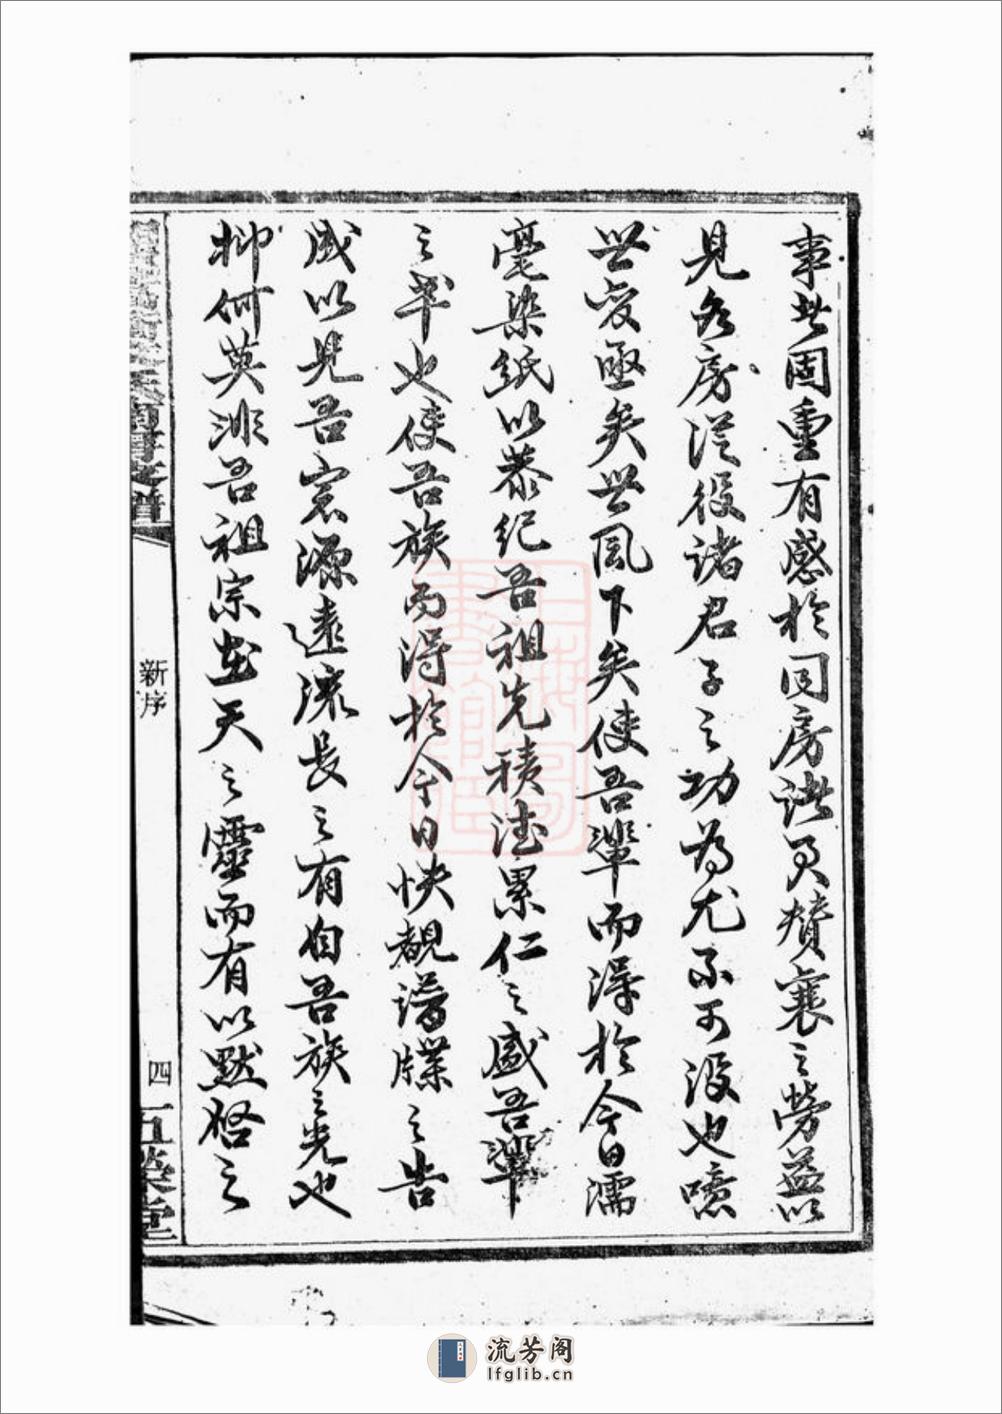 事此固重有感於同房諸贊襄之勞益以
見各房從役諸君子之功為尤不可沒也噫
世變亟矣世風下矣使吾輩而得於今日濡
毫染紙以恭紀吾祖先積德累仁之盛吾輩
之幸也使吾族而得於今日快覩譜牒之告
成以見吾宗源遠流長之有自吾族之光也
抑何莫非吾祖宗在天之靈而有以默啓之
支譜
新序
四
堂
流芳阁
lfglib.cn